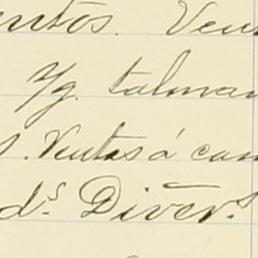 entos. Ven
Yg. talman
s. Ventas á cam
ds. Divers.